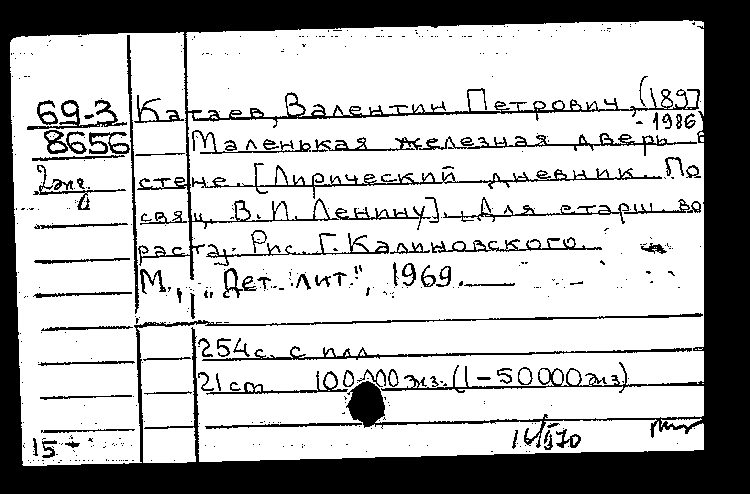 69-3 Катаев, Валентин Петрович, (1897
- 1986)
8656 Маленькая железная дверь в
2 экз стене. [Лирический дневник. По
свящ. В.И. Ленину]. Для старш. во
раста. Рис. Г. Калиновского.
М., „Дет. лит.", 1969.
254 с. с илл.
21 cm 100000 экз. (1-50000 экз)
15